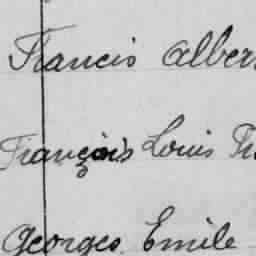 Francis Albert
François Louis Fr
Georges Emile